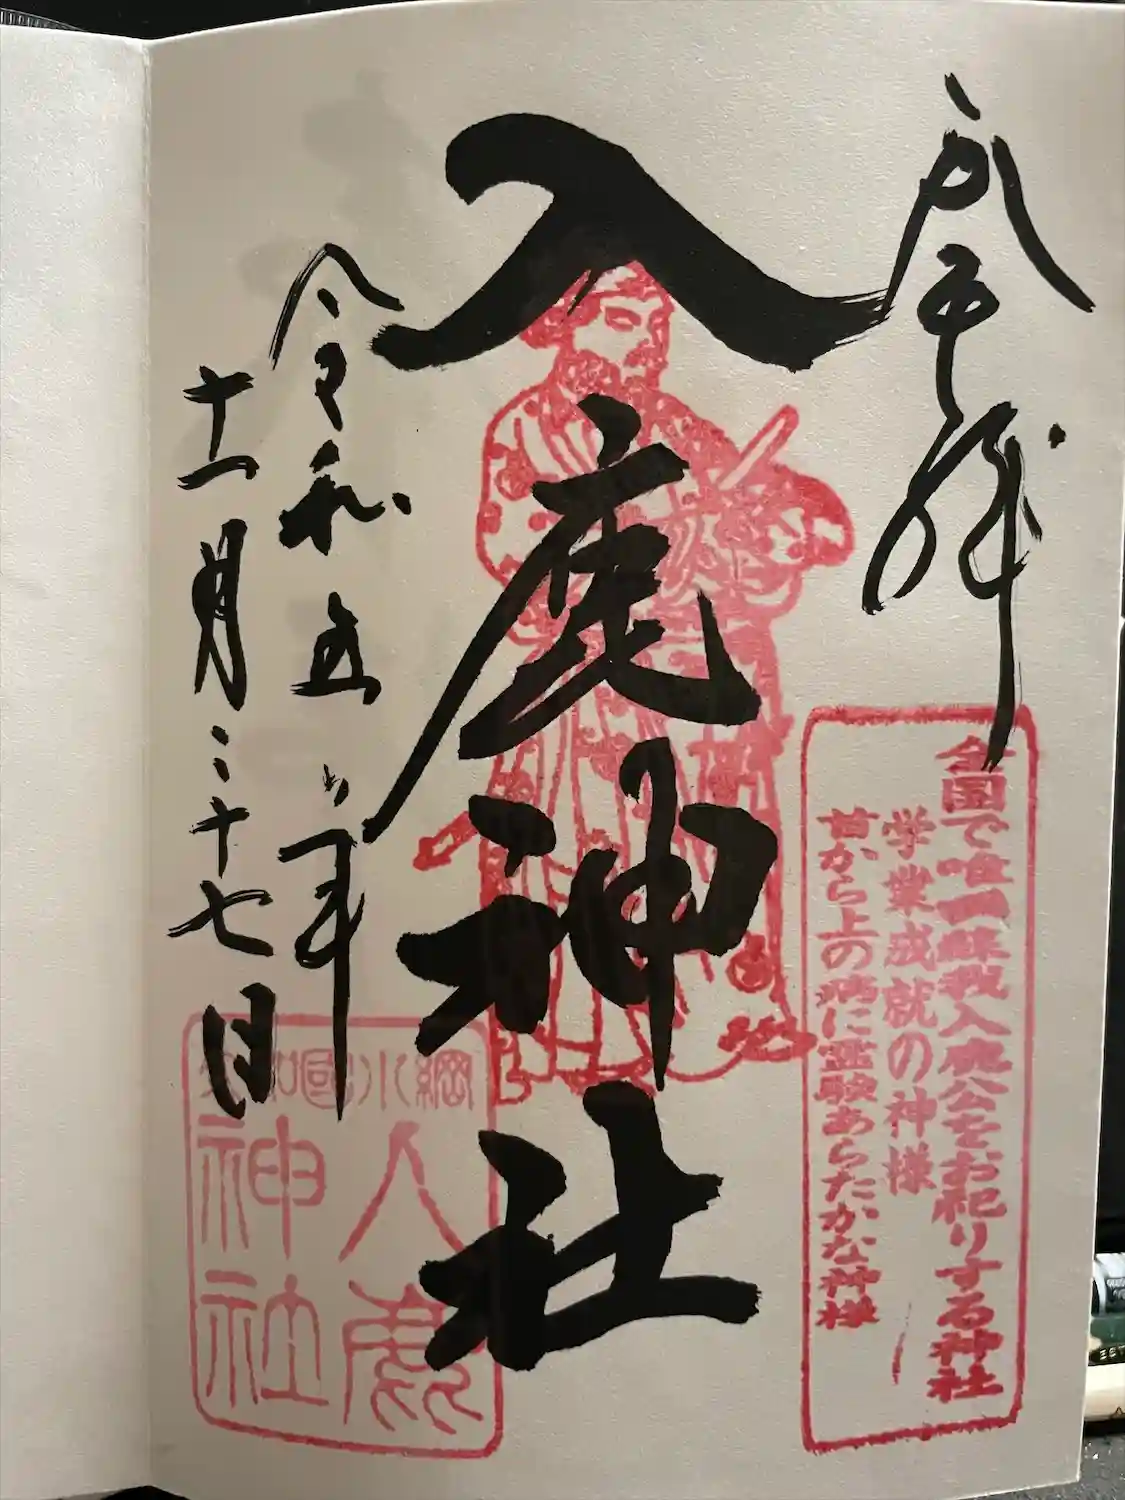 奉拝
全国で唯一蘇我入鹿公をお祀りする神社
学業成就の神様
首から上の病に霊験あらたかな神様
入鹿神社
令和五年
十一月二十七日
大和國小綱
入鹿
神社